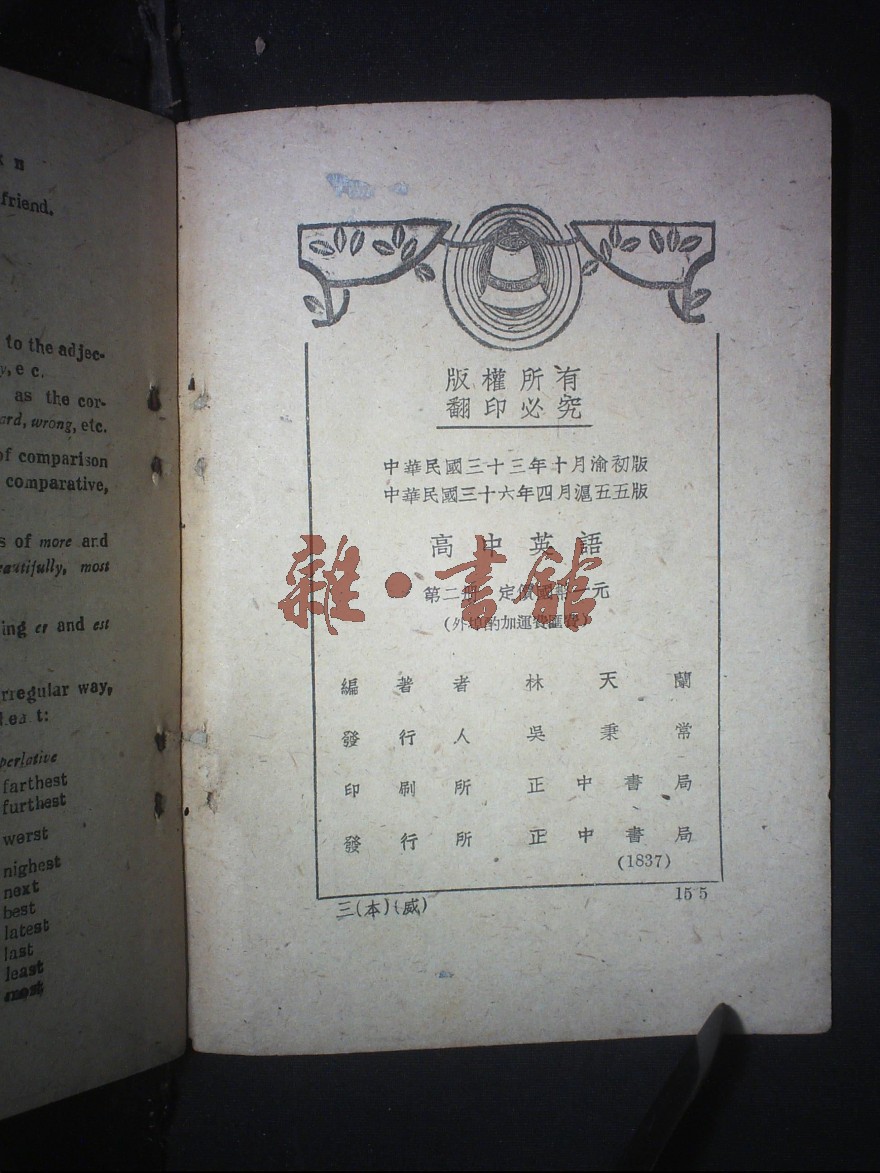 friend.
to the adjec-
as the cor-
ard, wrong, etc.
of comparison
comparative,
s of more and
eautifully, most
ing er and est
rregular way,
perlative
farthest
furthest
worst
nighest
next
best
latest
last
least
most
版權所有
翻印必究
中華民國三十三年十月渝初版
中華民國三十六年四月滬五五版
高中英語
第二冊 定價國幣一元
(外埠酌加運費匯費)
雜·書館
編著者 林天蘭
發行人 吳秉常
印刷所 正中書局
發行所 正中書局
(1837)
三(本)(威)
15 5